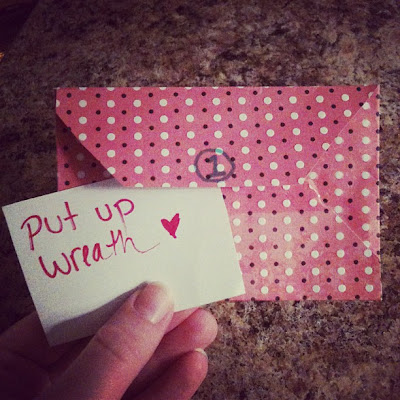 1
put up
wreath